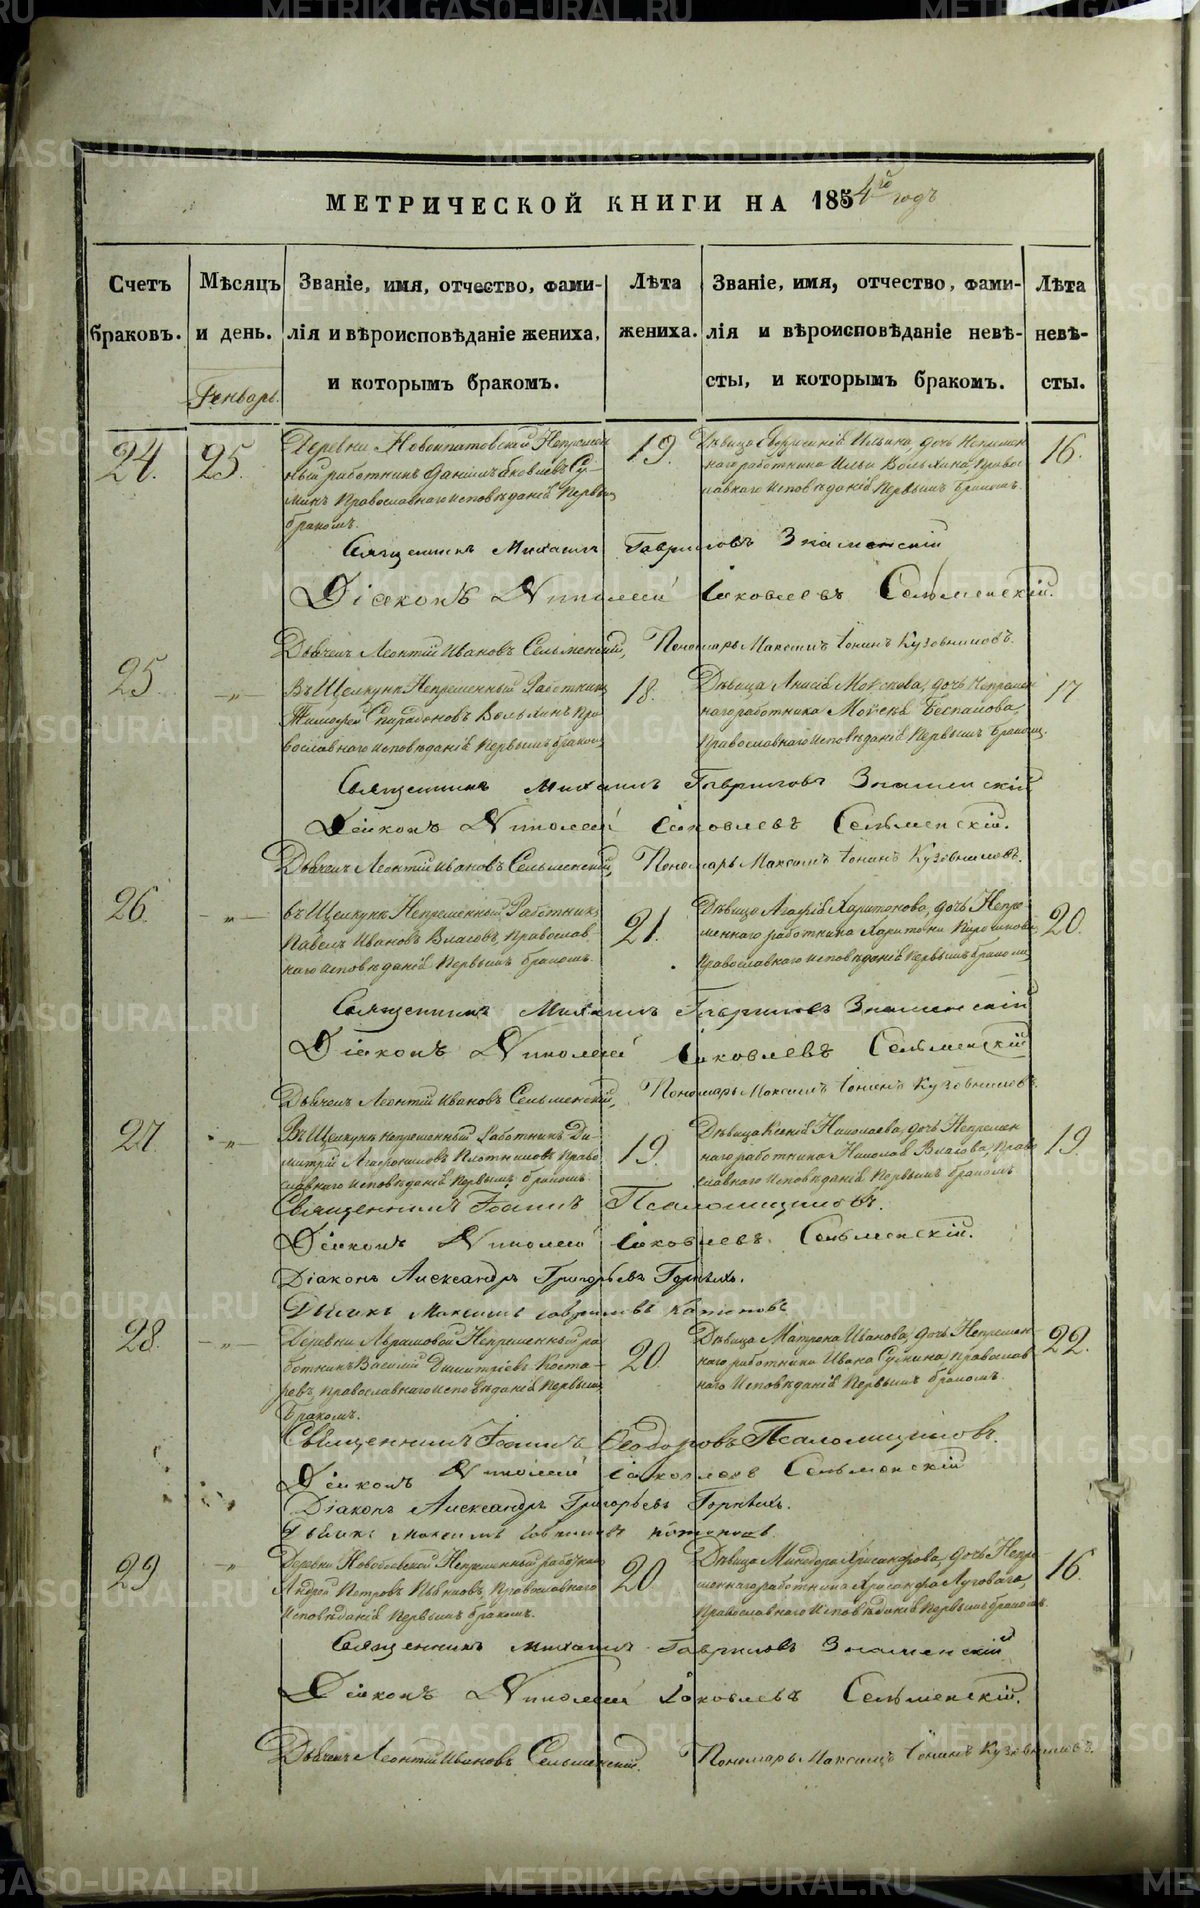 МЕТРИЧЕСКОЙ КНИГИ НА 1854го годъ
Счетъ браковъ.
Мѣсяцъ и день.
Званіе, имя, отчество, фами-
лія и вѣроисповѣданіе жениха,
и которымъ бракомъ.
Лѣта
жениха.
Званіе, имя, отчество, фами-
лія и вѣроисповѣданіе невѣ-
сты, и которымъ бракомъ.
Лѣта
невѣ-
сты.
Генварь.
24.
25.
Деревни Новоипатовской Непремен
ный работникъ Даніилъ Яковлевъ Су-
минъ Православнаго исповѣданія первымъ
бракомъ.
19.
Дѣвица Ильина, дочь Непремен
наго работника Ильи Волхина, Правос
лавнаго исповѣданія первымъ бракомъ.
16.
Священникъ Михаилъ Гавриловъ Знаменскій
Діаконъ Николай Іаковлевъ Сельменскій.
Дьячекъ Леонтій Ивановъ Сельменскій, Пономарь Максимъ Іонинъ Кузовниковъ.
25
"
Въ Щелкунѣ Непременный Работникъ
Тимофей Спиридоновъ Волхинъ Пра
вославнаго исповѣданія первымъ бракомъ
18.
Дѣвица Анисія Моискова, дочь Непремен
наго работника Моисея Беспалова,
Православнаго исповѣданія первымъ бракомъ.
17
Священникъ Михаилъ Гавриловъ Знаменскій
Діаконъ Николай Іаковлевъ Сельменскій.
Дьячекъ Леонтій Ивановъ Сельменскій, Пономарь Максимъ Іонинъ Кузовниковъ.
26.
"
въ Щелкунѣ Непременный Работникъ
Павелъ Ивановъ Власовъ, Православ
наго исповѣданія первымъ бракомъ.
21.
Дѣвица Агафія Харитонова, дочь Непре-
меннаго работника Харитона
Православнаго исповѣданія первымъ бракомъ,
20.
Священникъ Михаилъ Гавриловъ Знаменскій
Діаконъ Николай Іаковлевъ Сельменскій
Дьячекъ Леонтій Ивановъ Сельменскій, Пономарь Максимъ Іонинъ Кузовниковъ.
27.
"
Въ Щелкунѣ Непременный Работникъ Ди-
митрій Агафониковъ Плотниковъ Право
славнаго исповѣданія первымъ бракомъ.
19.
Дѣвица Ксенія Николаева, дочь Непремен
наго работника Николая Власова, Право
славнаго исповѣданія первымъ бракомъ.
19.
Священникъ Іоаннъ Псаломщиковъ.
Діаконъ Николай Іаковлевъ Сельменскій.
Діаконъ Александръ Григорьевъ Горныхъ.
Дьячекъ Максимъ Гавриловъ
28.
"
Деревни Абрамовой Непременный ра
ботникъ Василій Димитріевъ Коста-
ревъ, Православнаго исповѣданія первымъ
бракомъ.
20.
Дѣвица Матрона Иванова, дочь Непремен-
наго работника Ивана Сушина Православ
наго исповѣданія первымъ бракомъ.
22.
Священникъ Іоаннъ Ѳеодоровъ Псаломщиковъ.
Діаконъ Николай Іаковлевъ Сельменскій
Діаконъ Александръ Григорьевъ Горныхъ.
Дьячекъ Максимъ Гавриловъ
29
"
Деревни Непременный работникъ
Андрей Петровъ Православнаго
исповѣданія первымъ бракомъ.
20.
Дѣвица Минодора Хрисанфова, дочь Непре
меннаго работника Хрисанфа Луговаго,
Православнаго исповѣданія первымъ бракомъ.
16.
Священникъ Михаилъ Гавриловъ Знаменскій
Діаконъ Николай Іаковлевъ Сельменскій.
Дьячекъ Леонтій Ивановъ Сельменскій. Пономарь Максимъ Іонинъ Кузовниковъ.
METRIKI.GASO-URAL.RU